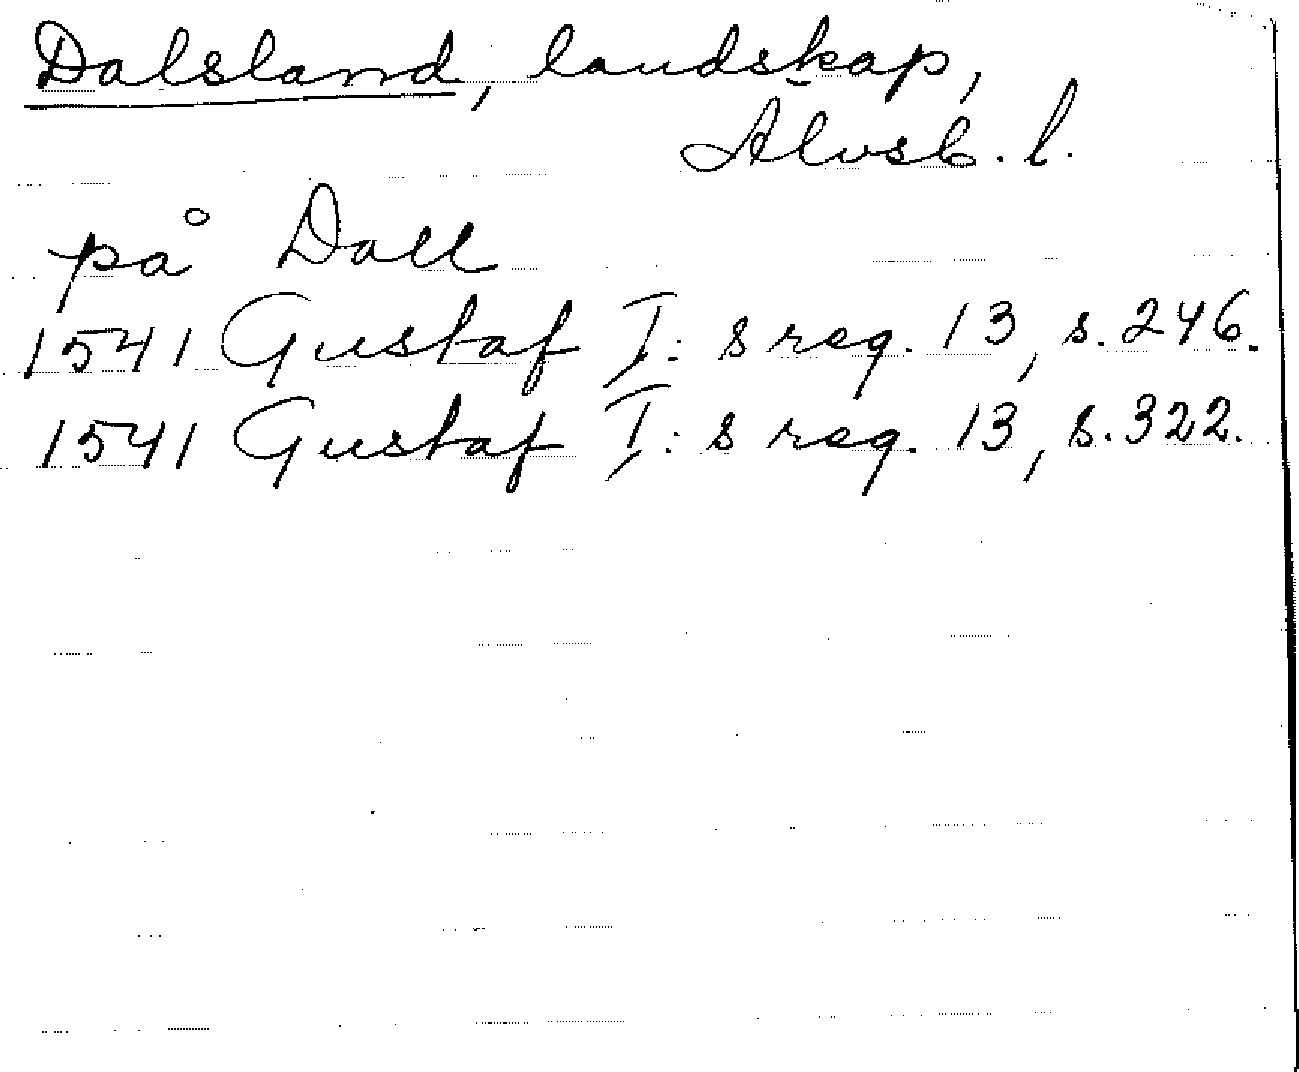 Dalsland, landskap,
Alvsb. l.
på Dall
1541 Gustaf I:s reg. 13, s. 246.
1541 Gustaf I:s reg. 13, s. 322.